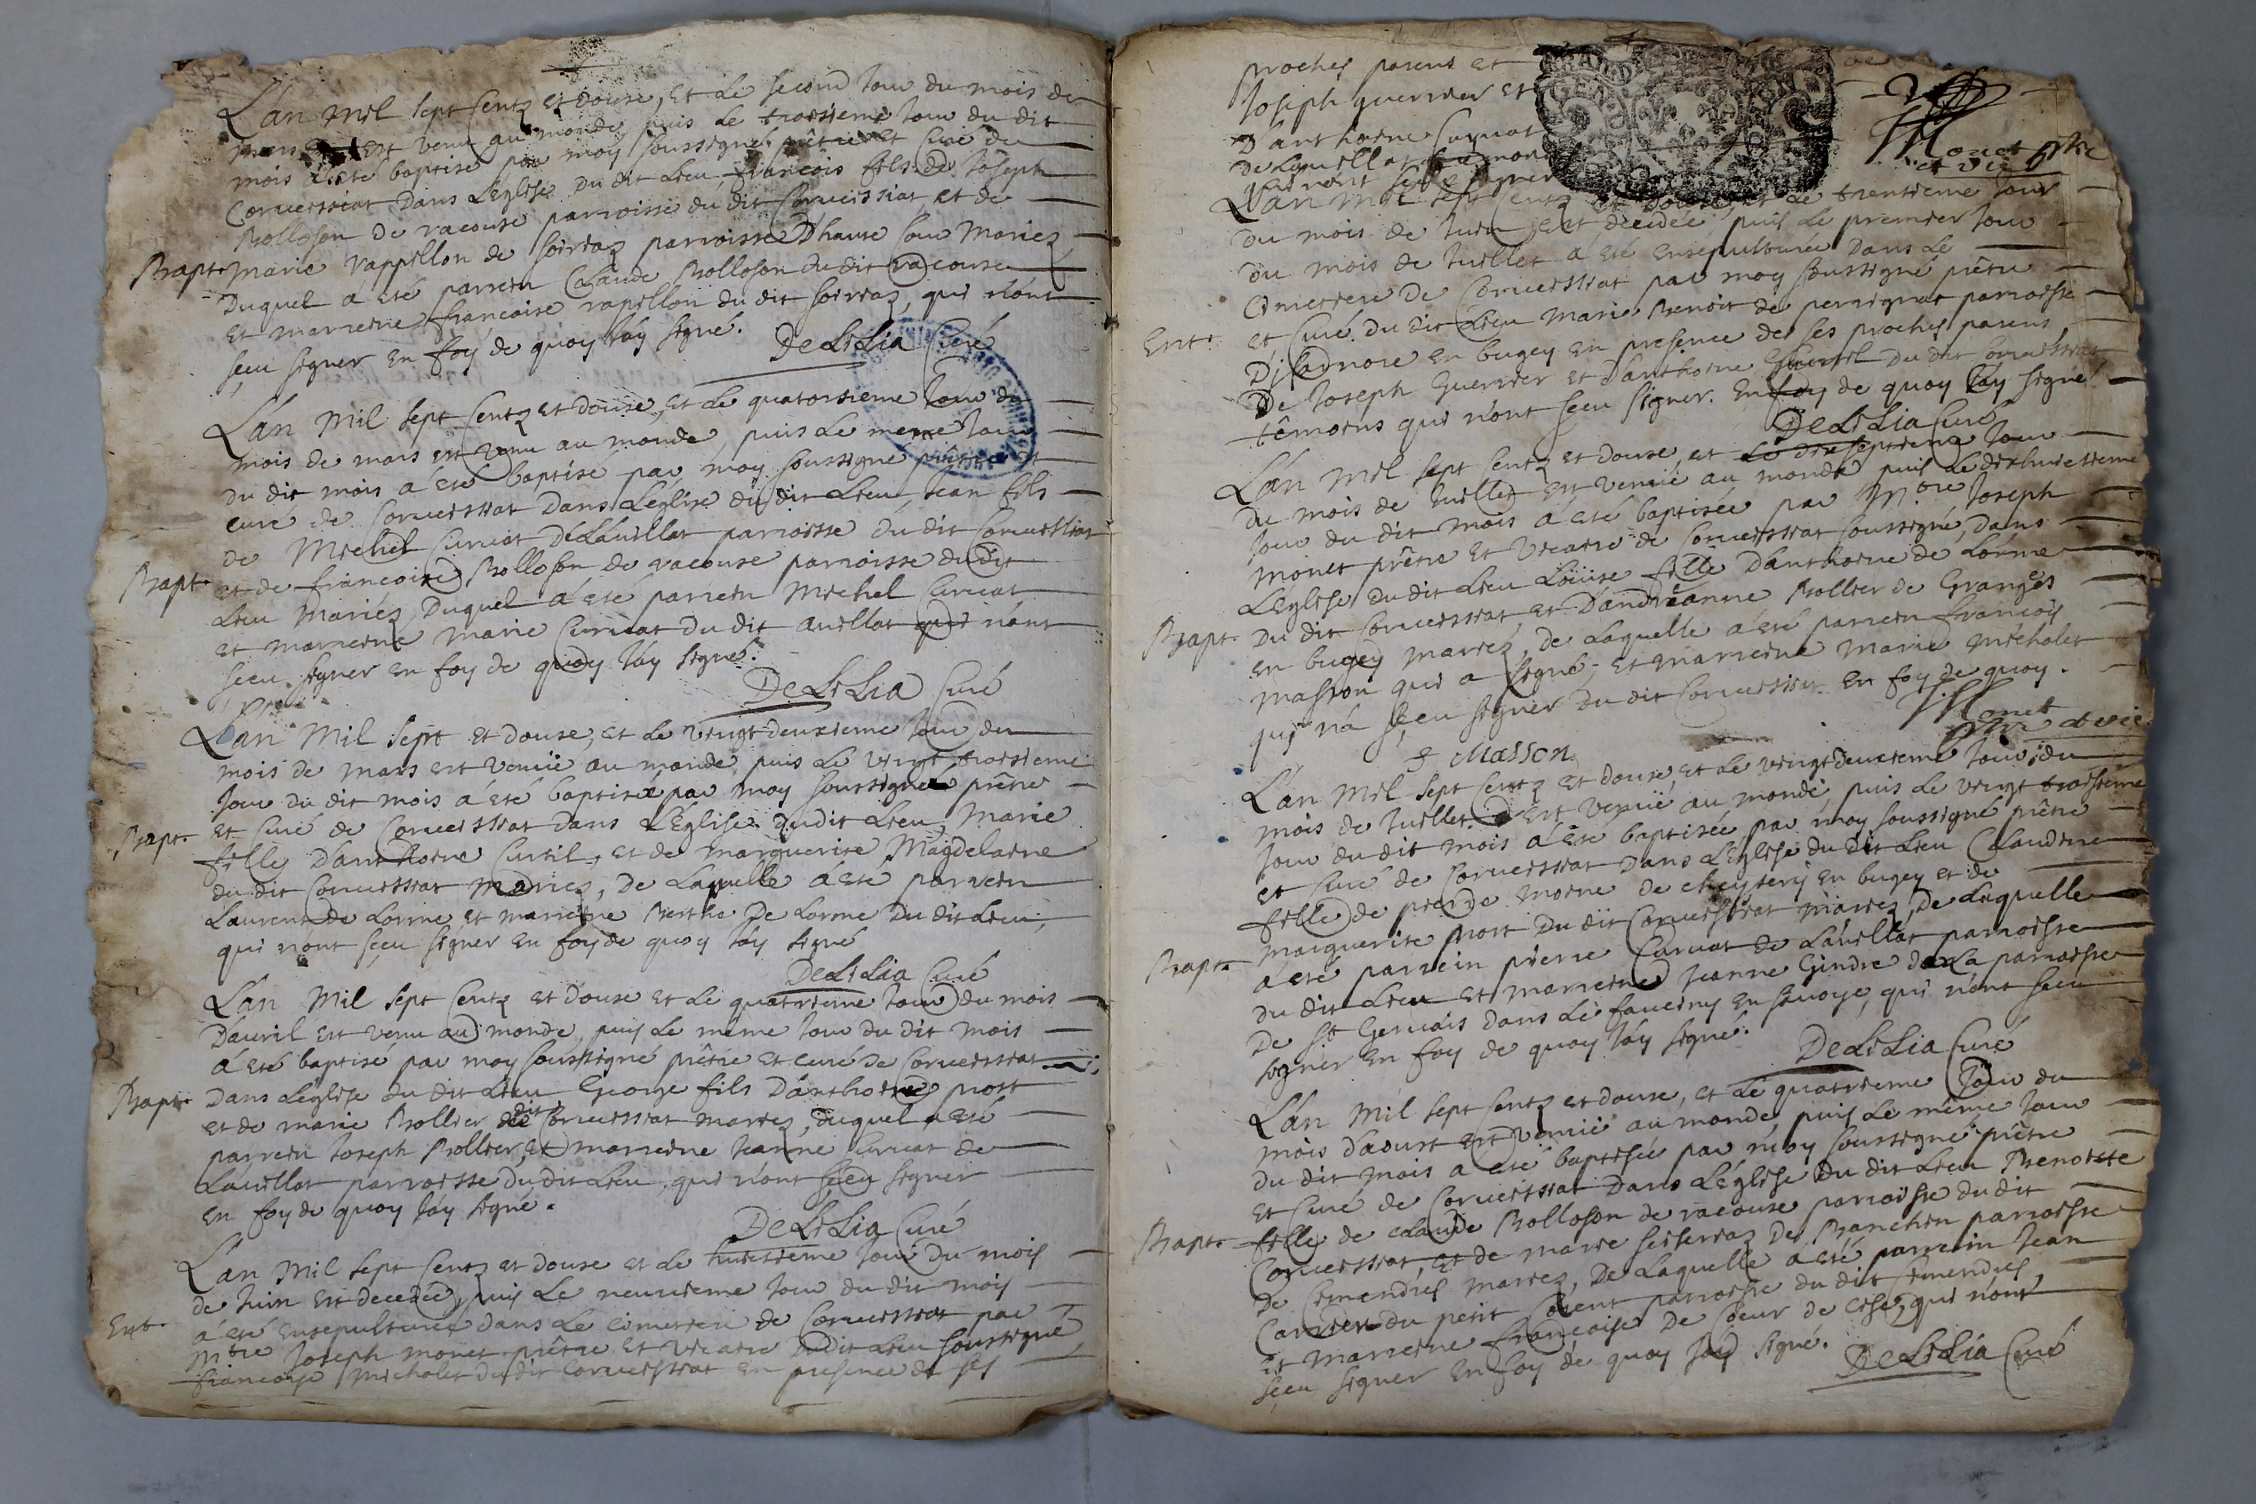 L'an mil sept Centz et douse, et Le second Jour du mois de
mars est venu au monde, puis Le troisieme Jour du dit
mois à eté baptisé par moy soussigné prêtre et Curé de
Corueissiat dans L'Eglise du dit Lieu, francois fils de Joseph
Bolloson de racouse parroisse du dit Corueissiat et de
Bapt. marie rappillon de soirriaz parroisse D'hauue sour Mariez,
Duquel a eté parrein Claude Bolloson du dit racouse
et marreine francoise rapillon du dit soirriaz, qui n'ont
sceu signer en foy de quoy J'ay signé.
DeLiLia Curé
L'an mil sept Centz et douse, et Le quatorsieme Jour du
mois de mars est venu au monde, puis Le meme Jour
du dit mois à eté baptisé par moy soussigné prêtre et
curé de Corueissiat dans L'église du dit Lieu, Jean fils
de Michel Curuat De Lauillat parroisse du dit Corueissiat
Bapt. et de francoise Bolloson de racouse parroisse du dit
Lieu Mariez, Duquel à eté parrein Michel Curuat
et marreine marie Curuat du dit auillat qui n'ont
sceu signer en foy de quoy J'ay signé.
DeLiLia Curé
L'an Mil sept et douse, et Le vingtdeuxieme Jour du
mois de mars est venuë au monde, puis Le vingt troisieme
Jour du dit mois à eté baptisé par moy soussigné prêtre
Bapt. et Curé de Corueissiat dans L'Eglise dudit Lieu, Marie
fille D'anthoine Curtil, et de marguerite Magdelaine
du dit Corueissiat mariez, de Laquelle à eté parrein
Laurent de Lorme et marreine Berthe De Lorme Du dit Lieu,
qui n'ont sçeu signer en foy de quoy J'ay signé
DeLiLia Curé
L'an Mil sept Centz et Douse et Le quatrieme Jour du mois
D'auril est venu au monde, puis Le même Jour du dit mois
à eté baptisé par moy soussigné prêtre et curé de Corueissiat
Bapt. Dans L'église du dit Lieu George fils D'anthoine prost
et de marie Bollier du dit Corueissiat mariez, duquel a eté
parrein Joseph Bollier, et marreine Jeanne Curuat de
Lauillat parroisse du dit Lieu, qui n'ont sceu signer
en foy de quoy J'ay signé.
DeLiLia Curé
L'an Mil sept Centz et douse et Le huitieme Jour Du mois
de Juin est decedée, puis Le neuuieme Jour du dit mois
Ent. à eté ensepulturée dans Le cimetiere de Corueissiat par
mtre Joseph monet prêtre et vicaire dudit Lieu soussigné,
francoise Micholet du dit Corueissiat en presence de ses
proches parens et
Joseph guerrier et
D'anthoine Curuat
De Lauillat
qui n'ont sceu signer
Monet ptre
et vic
L'an mil sept Centz et douse, et Le trentieme Jour
du mois de Juin est decedée, puis Le premier Jour
du mois de Juillet à eté ensepulturée dans Le
cimetiere de Corueissiat par moy soussigné prêtre
Ent. et Curé du dit Lieu Marie Benoit de perrignat parroisse
D'isarnore en bugey en presence de ses proches parens,
De Joseph Guerrier et d'anthoine Curtil du dit Corueissiat
têmoins qui n'ont sceu signer. En foy de quoy J'ay signé
DeLiLia Curé
L'an Mil sept Centz et douse, et Le dixseptieme Jour
du mois de Juillet est venuë au monde, puis Le dixhuitieme
Jour du dit mois à eté baptisée par mre Joseph
monet prêtre et vicaire de Corueissiat soussigné, Dans
L'Eglise du dit Lieu Loüise fille D'anthoine de Lorme
Bapt. Du dit Corueissiat, et D'andréanne Bollier de Granges
en bugey mariez, de Laquelle à eté parrein francois
masson qui a signé, et marreine Marie Micholet
qui n'a sçeu signer du dit Corueissiat. En foy de quoy.
Monet
ptre et vic.
f Masson
L'an Mil sept Centz et douse, et Le vingtdeuxieme Jour du
mois de Juillet est venuë au monde, puis Le vingt troisieme
Jour du dit mois à eté baptisée par moy soussigné prêtre
et Curé de Corueissiat Dans L'Eglise du dit Lieu Claudine
fille de pierre moine de cheysery en bugey et de
Bapt. marguerite Prost Du dit Corueissiat mariez, De Laquelle
a eté parrein pierre Curuat de Lauillat parroisse
du dit Lieu et marreine Jeanne Gindre de La parroisse
De st Gervais dans Le faucigny en sauoye, qui n'ont sceu
signer en foy de quoy J'ay signé.
DeLiLia Curé
L'an Mil sept Centz et douse, et Le quatrieme Jour du
mois d'aoust est venuë au monde, puis Le même Jour
du dit mois a eté baptisée par moy soussigné prêtre
et Curé de Corueissiat Dans L'Eglise Du dit Lieu Benoiste
Bapt. fille de claude Bolloson de racouse parroisse du dit
Corueissiat, et de marie seiserriaz De Branchin parroisse
De Simendres mariez, De Laquelle à eté parrein Jean
Carrier du petit Corent parroisse du dit Simendres,
et marreine françoise De Coeur de Cise, qui n'ont
sçeu signer en foy de quoy J'ay signé.
DeLiLia Curé